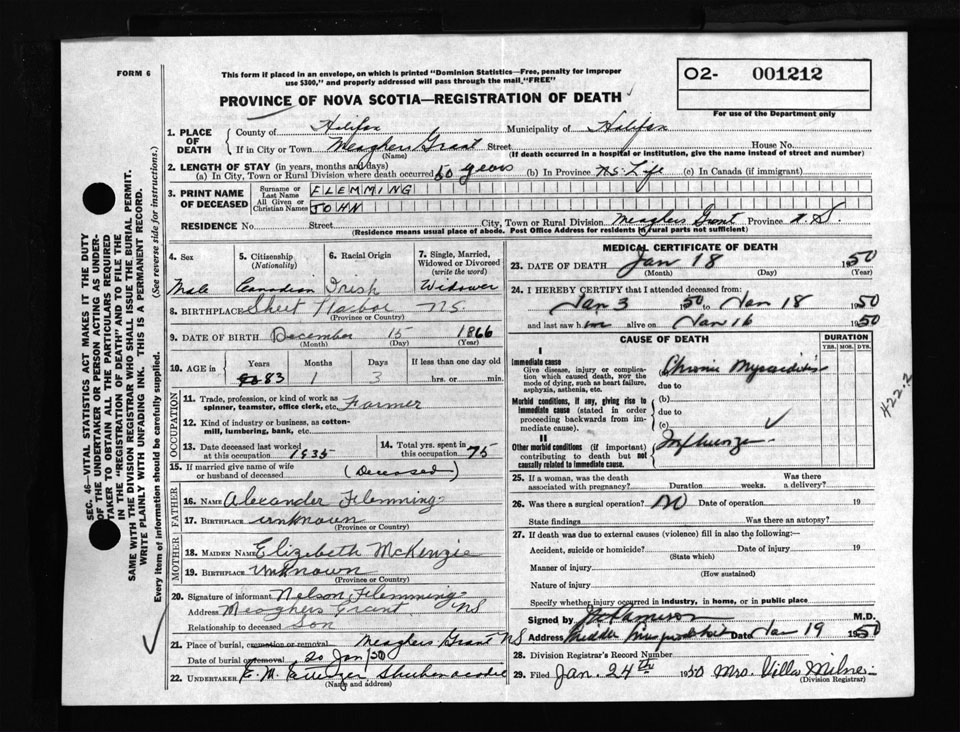 FORM 6
This form if placed in an envelope, on which is printed "Dominion Statistics—Free, penalty for improper
use $300," and properly addressed will pass through the mail "FREE"
O2- 001212
For use of the Department only
PROVINCE OF NOVA SCOTIA—REGISTRATION OF DEATH
1. PLACE OF DEATH
County of Halifax Municipality of Halifax
If in City or Town Meaghers Grant Street House No.
(Name) (If death occurred in a hospital or institution, give the name instead of street and number)
2. LENGTH OF STAY (in years, months and days)
(a) In City, Town or Rural Division where death occurred 50 years (b) In Province N.S. Life (c) In Canada (if immigrant)
3. PRINT NAME OF DECEASED
Surname or Last Name FLEMMING
All Given or Christian Names JOHN
RESIDENCE No. Street City, Town or Rural Division Meaghers Grant Province N.S.
(Residence means usual place of abode. Post Office Address for residents in rural parts not sufficient)
4. Sex
Male
5. Citizenship
(Nationality)
Canadian
6. Racial Origin
Irish
7. Single, Married,
Widowed or Divorced
(write the word)
Widower
8. BIRTHPLACE Sheet Harbor NS.
(Province or Country)
9. DATE OF BIRTH December 15 1866
(Month) (Day) (Year)
10. AGE in
Years Months Days If less than one day old
83 1 3 hrs. or min.
OCCUPATION
11. Trade, profession, or kind of work as
spinner, teamster, office clerk, etc. Farmer
12. Kind of industry or business, as cotton-
mill, lumbering, bank, etc.
13. Date deceased last worked
at this occupation 1935
14. Total yrs. spent in
this occupation 75
15. If married give name of wife
or husband of deceased (Deceased)
FATHER
16. NAME Alexander Flemming
17. BIRTHPLACE unknown
(Province or Country)
MOTHER
18. MAIDEN NAME Elizebeth McKenzie
19. BIRTHPLACE unknown
(Province or Country)
20. Signature of informant Nelson Flemming
Address Meaghers Grant NS
Relationship to deceased Son
21. Place of burial, cremation or removal Meaghers Grant NS
Date of burial or removal 20 Jan/50
22. UNDERTAKER E. M. Shubenacadie
(Name and address)
MEDICAL CERTIFICATE OF DEATH
23. DATE OF DEATH Jan 18 1950
(Month) (Day) (Year)
24. I HEREBY CERTIFY that I attended deceased from:
Jan 3 1950 to Jan 18 1950
and last saw him alive on Jan 16 1950
CAUSE OF DEATH
DURATION
YRS. MOS. DYS.
I
Immediate cause
Give disease, injury or complica-
tion which caused death, NOT the
mode of dying, such as heart failure,
asphyxia, asthenia, etc.
Chronic Myocarditis
due to
Morbid conditions, if any, giving rise to
immediate cause (stated in order
proceeding backwards from im-
mediate cause).
(b)
due to
(c)
II
Other morbid conditions (if important)
contributing to death but not
causally related to immediate cause.
Influenza
422.2
25. If a woman, was the death
associated with pregnancy? Duration weeks. Was there
a delivery?
26. Was there a surgical operation? No Date of operation 19
State findings Was there an autopsy?
27. If death was due to external causes (violence) fill in also the following:—
Accident, suicide or homicide? Date of injury 19
(State which)
Manner of injury
(How sustained)
Nature of injury
Specify whether injury occurred in industry, in home, or in public place
Signed by M.D.
Address Middle Musquodoboit Date Jan 19 1950
28. Division Registrar's Record Number
29. Filed Jan. 24th 1950 Mrs. Villa Milne
(Division Registrar)
SEC. 46—VITAL STATISTICS ACT MAKES IT THE DUTY
OF THE UNDERTAKER OR PERSON ACTING AS UNDER-
TAKER TO OBTAIN ALL THE PARTICULARS REQUIRED
IN THE "REGISTRATION OF DEATH" AND TO FILE THE
SAME WITH THE DIVISION REGISTRAR WHO SHALL ISSUE THE BURIAL PERMIT.
WRITE PLAINLY WITH UNFADING INK. THIS IS A PERMANENT RECORD.
Every item of information should be carefully supplied. (See reverse side for instructions.)